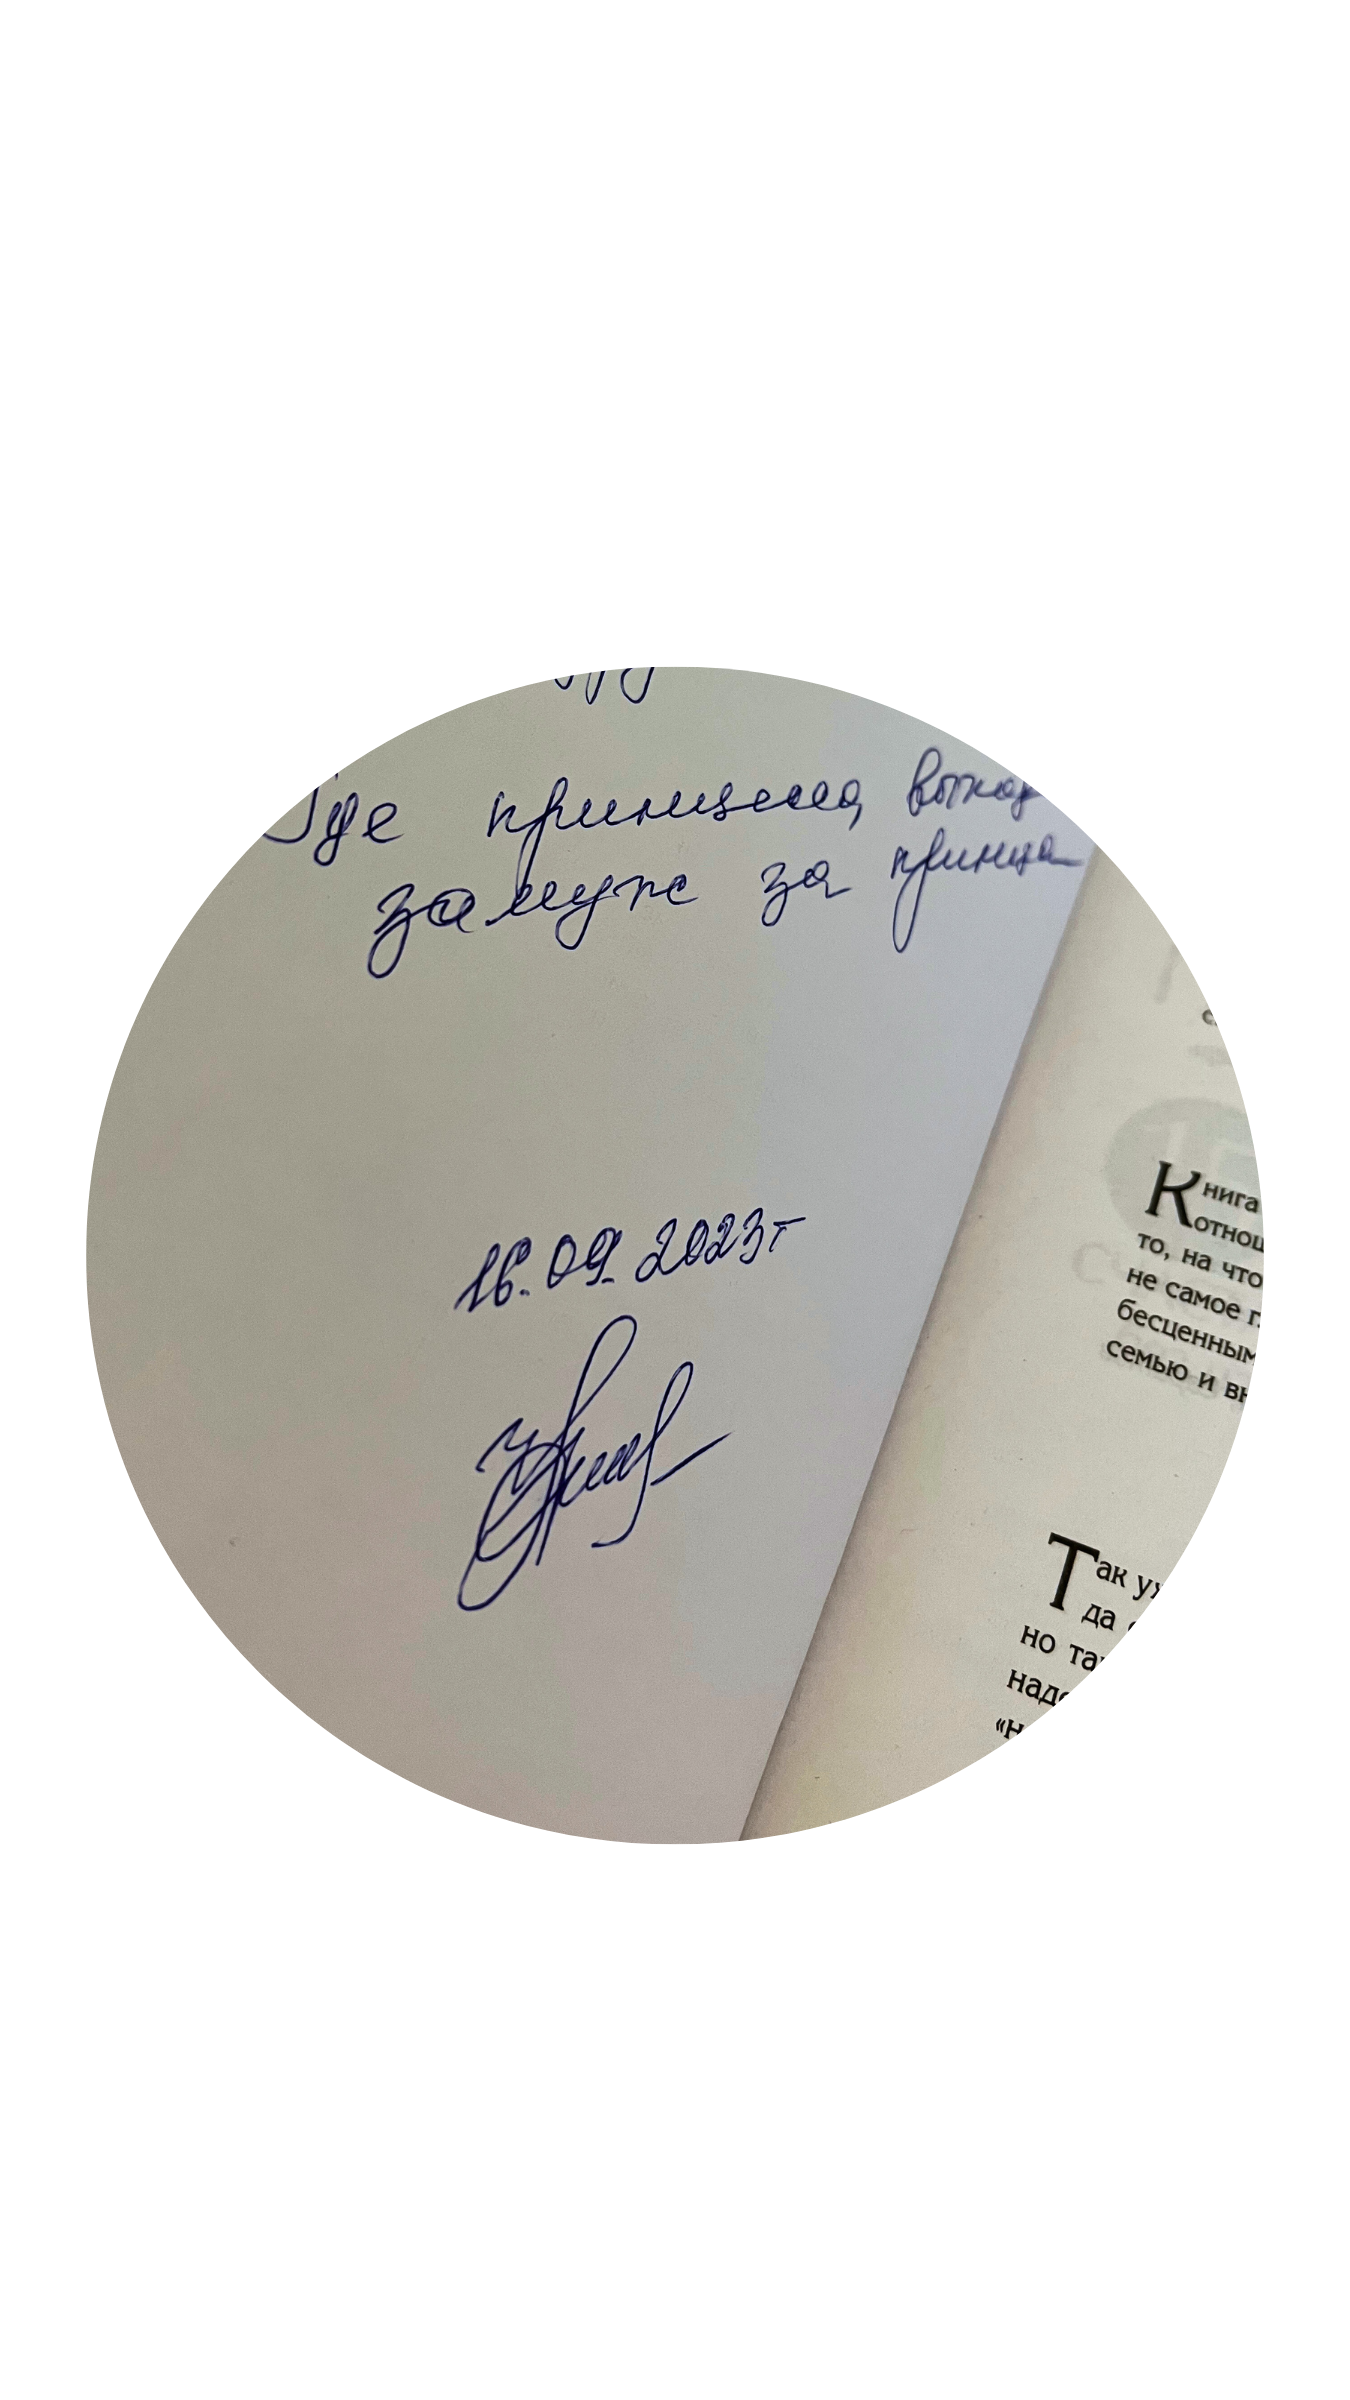 Где принцесса выход
замуж за принца
16.09.2023г
Книга
отнош
то, на что
не самое г
бесценным
семью и вн
Так уж
да
но так
надо
«н